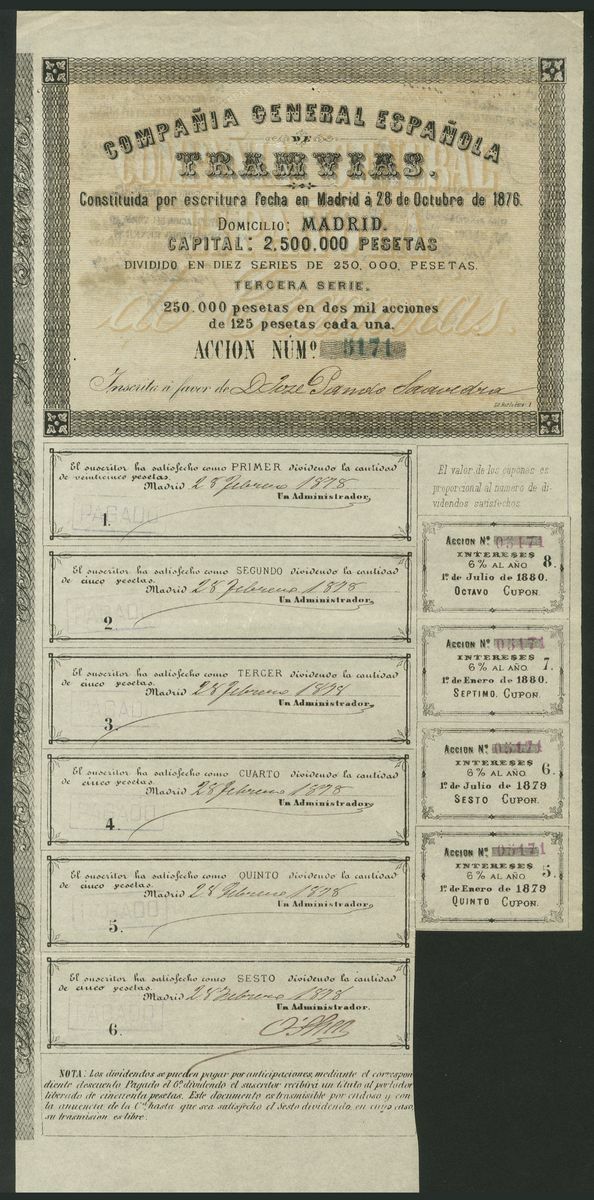 COMPAÑIA GENERAL ESPAÑOLA
DE
TRAMVIAS.
Constituida por escritura fecha en Madrid á 28 de Octubre de 1876.
DOMICILIO: MADRID.
CAPITAL: 2,500,000 PESETAS
DIVIDIDO EN DIEZ SERIES DE 250,000, PESETAS.
TERCERA SERIE.
250.000 pesetas en dos mil acciones
de 125 pesetas cada una.
ACCION NÚMº 5171
Inscrita á favor de D. José Pando Saavedra
El suscritor ha satisfecho como PRIMER dividendo la cantidad
de veinticinco pesetas.
Madrid 28 Febrero 1878
Un Administrador,
1.
PAGADO
El suscritor ha satisfecho como SEGUNDO dividendo la cantidad
de cinco pesetas.
Madrid 28 Febrero 1878
Un Administrador,
2
El suscritor ha satisfecho como TERCER dividendo la cantidad
de cinco pesetas.
Madrid 28 Febrero 1878
Un Administrador,
3.
El suscritor ha satisfecho como CUARTO dividendo la cantidad
de cinco pesetas.
Madrid 28 Febrero 1878
Un Administrador,
4.
El suscritor ha satisfecho como QUINTO dividendo la cantidad
de cinco pesetas.
Madrid 28 Febrero 1878
Un Administrador,
5.
El suscritor ha satisfecho como SESTO dividendo la cantidad
de cinco pesetas.
Madrid 28 Febrero 1878
Un Administrador.
6.
NOTA: Los dividendos se pueden pagar por anticipaciones, mediante el correspon
diente descuento Pagado el 6º dividendo el suscritor recibirá un titulo al portador
liberado de cincuenta pesetas. Este documento es trasmisible por endoso y con
la anuencia de la Cª hasta que sea satisfecho el Sesto dividendo, en cuyo caso,
su trasmision es libre.
El valor de los cupones es
proporcional al número de di-
videndos satisfechos
ACCION Nº 05171
INTERESES
6% AL AÑO 8.
1º de Julio de 1880.
OCTAVO CUPON.
ACCION Nº 05171
INTERESES
6% AL AÑO 7.
1º de Enero de 1880.
SEPTIMO. CUPON.
ACCION Nº 05171
INTERESES
6% AL AÑO 6.
1º de Julio de 1879
SESTO CUPON.
ACCION Nº 05171
INTERESES
6% AL AÑO. 5.
1º de Enero de 1879
QUINTO CUPON.